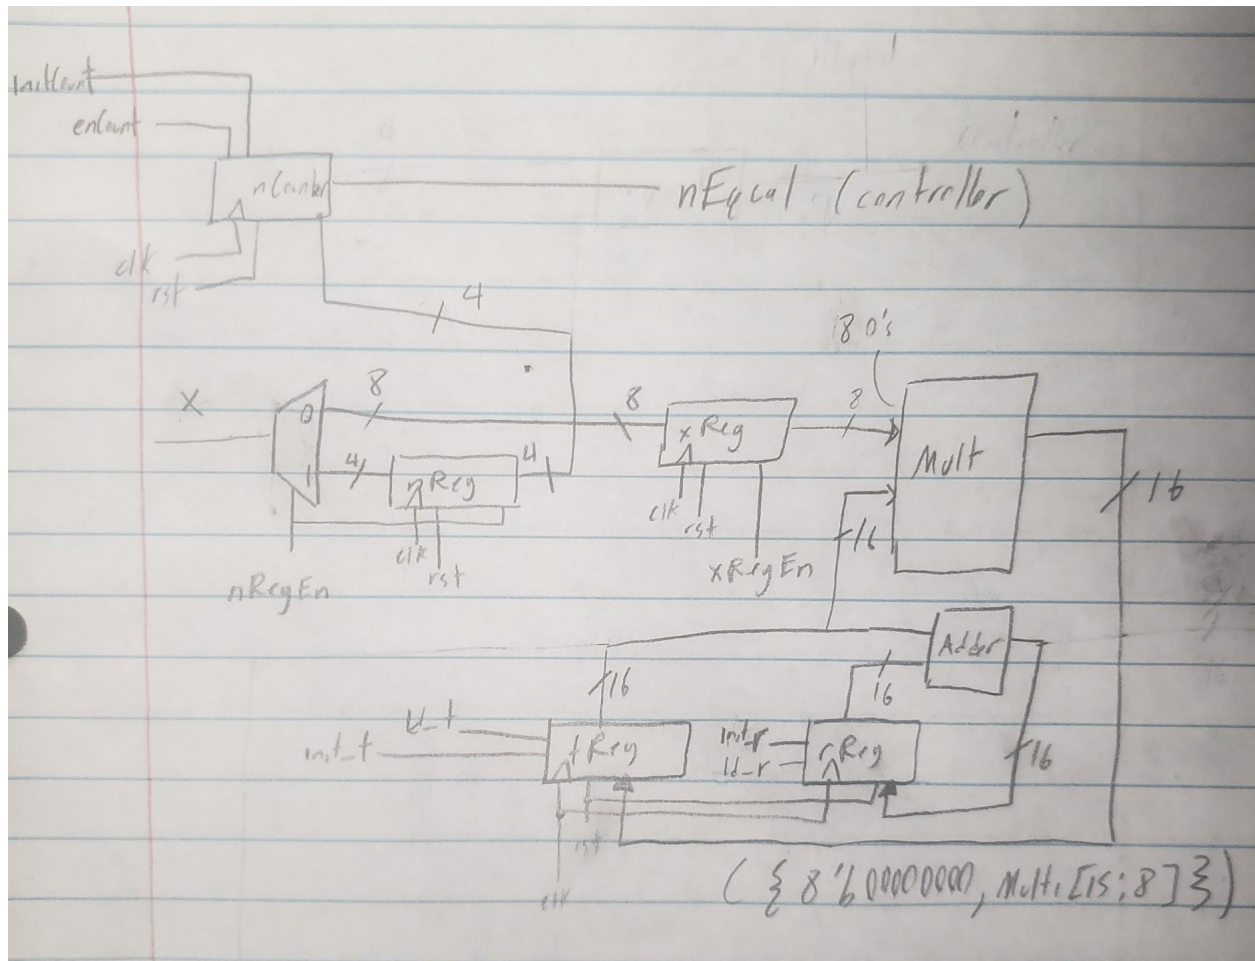 initCount
enCount
nCounter
nEqual (controller)
clk
rst
4
8 0's
X
0
8
8
xReg
8
Mult
1
4
nReg
4
clk
rst
16
16
clk
rst
nRegEn
xRegEn
Adder
16
16
ld_t
init_t
tReg
init_r
ld_r
rReg
16
rst
clk
({8'b00000000, Multi[15:8]})